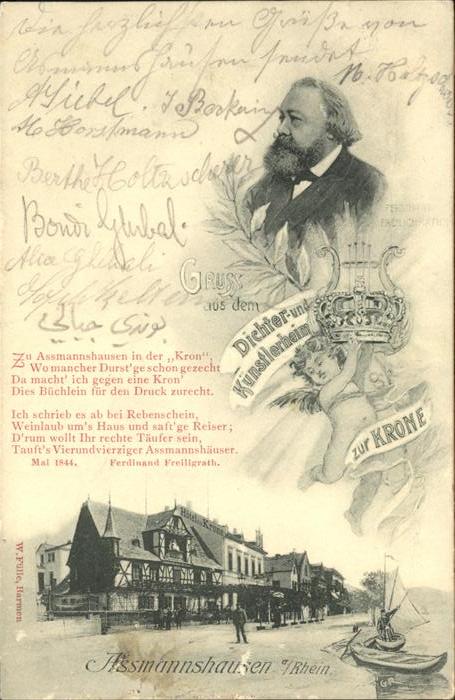 Die herzlichsten Grüße von
Assmannshausen sendet
A. Siebel.
M Horstmann
Berthe Holtzscherer
Bondi
Alia
FERDINAND
FREILIGRATH
Gruss
aus dem
Dichter- und
Künstlerheim
zur KRONE
Zu Assmannshausen in der „Kron“,
Wo mancher Durst'ge schon gezecht
Da macht' ich gegen eine Kron'
Dies Büchlein für den Druck zurecht.
Ich schrieb es ab bei Rebenschein,
Weinlaub um's Haus und saft'ge Reiser;
D'rum wollt Ihr rechte Täufer sein,
Tauft's Vierundvierziger Assmannshäuser.
Mai 1844. Ferdinand Freiligrath.
Hôtel Krone
W. Fülle, Barmen
Assmannshausen a/Rhein